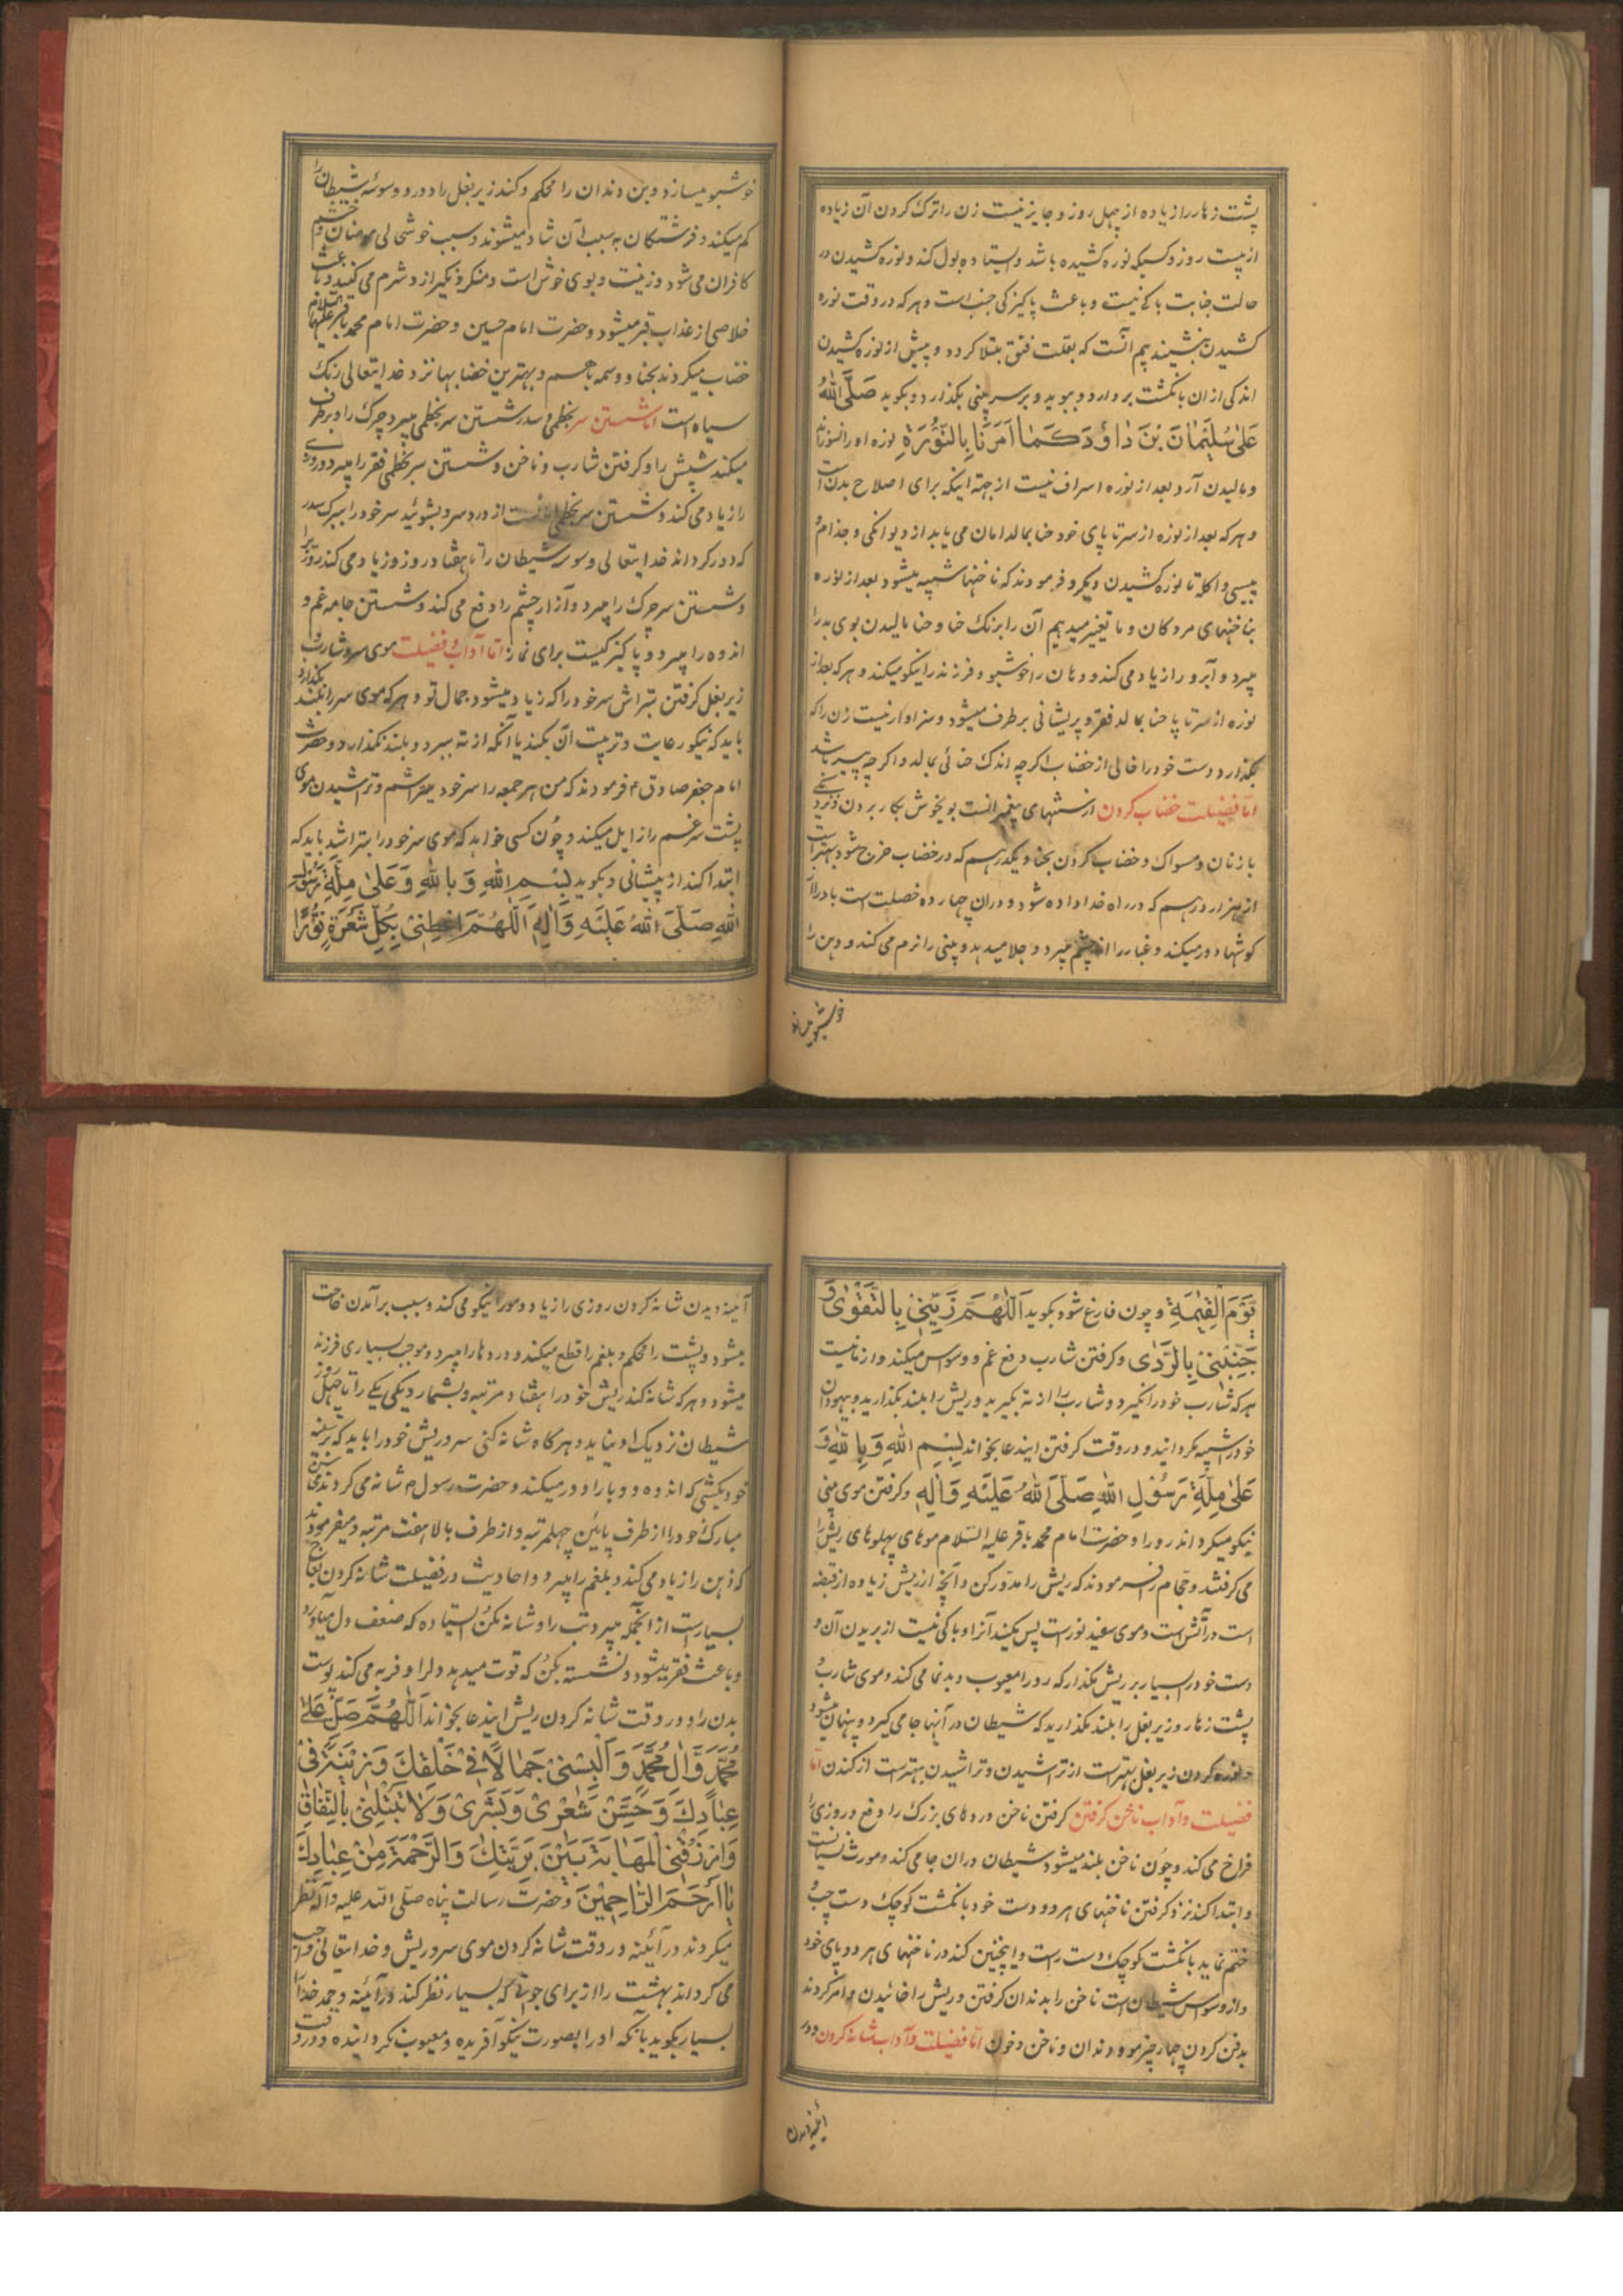 پشت زهار را زیاده از چهل روز و جایز نیست زن را ترک کردن آن زیاده
از بیست روز و کسیکه نوره کشیده باشد و ایستاده بول کند و نوره کشیدن در
حالت جنابت باکی نیست و باعث پاکیزکی جنب است و هر که در وقت نوره
کشیدن بنشیند بیم آنست که بعلت فتق مبتلا کردد و پیش از نوره کشیدن
اندکی از ان بانکشت بردارد و ببوید و بر سر بینی بکذارد و بکوید صَلَّی اللهُ
عَلیٰ سُلَیْمٰانَ بْنَ دٰاوُدَ کَمٰا اَمَرَنٰا بِالنُّوْرَةِ نوره او را نسوزاند
و مالیدن آرد بعد از نوره اسراف نیست از جهة اینکه برای اصلاح بدن است
و هر که بعد از نوره از سر تا پای خود حنا بمالد امان می یابد از دیوانکی و جذام و
پیسی و اکله تا نوره کشیدن دیکر و فرمودند که ناخنها شبیه میشود بعد از نوره
بناخنهای مردکان و ما تغییر میدهیم آن را برنک حنا و حنا مالیدن بوی بد را
میبرد و آبرو را زیاد می کند و دهان را خوشبو و فرزند را نیکو میکند و هر که بعد از
نوره از سر تا پا حنا بمالد فقر و پریشانی برطرف میشود و سزاوار نیست زن را که
بکذارد دست خود را خالی از خضاب اکرچه اندک حنائی بمالد و اکرچه پیر باشد
امّا فضیلت خضاب کردن از سنتهای پیغمبرانست بویخوش بکار بردن و نزدیکی
با زنان و مسواک و خضاب کردن بحنا و یکدرهم که در خضاب خرج شود بهتر است
از هزار درهم که در راه خدا داده شود و در ان چهارده خصلت است باد را از
کوشها دور میکند و غبار را از چشم میبرد و جلا میدهد و بینی را نرم می کند و دهن را
خوشبو میسازد
خوشبو میسازد و بن دندان را محکم و کند زیر بغل را دور و وسوسهٔ شیطان را
کم میکند و فرشتکان به سبب آن شاد میشوند و سبب خوشحالی مومنان و خشم
کافران می شود و زینت و بوی خوش است و منکر و نکیر از و شرم می کنند و باعث
خلاصی از عذاب قبر میشود و حضرت امام حسین و حضرت امام محمد باقر علیهما السلام
خضاب میکردند بحنا و وسمه باهم و بهترین خضابها نزد خدایتعالی رنک
سیاه است امّا شستن سر بخطمی و سدر شستن سر بخطمی میبرد چرک را و برطرف
میکند شپش را و کرفتن شارب و ناخن و شستن سر بخطمی فقر را میبرد و روزی
را زیاد می کند و شستن سر بخطمی امانست از درد سر و بشوئید سر خود را ببرک سدر
که دور کرداند خدایتعالی وسوسه شیطان را تا هفتاد روز و زیاد می کند روزی را
و شستن سر چرک را میبرد و آزار چشم را دفع می کند و شستن جامه غم و
اندوه را میبرد و پاکیزکیست برای نماز امّا آداب و فضیلت موی سر و شارب و
زیر بغل کرفتن بتراش سر خود را که زیاد میشود جمال تو و هر که موی سر را بلند بکذارد
باید که نیکو رعایت و تربیت آن بکند یا آنکه از ته ببرد و بلند نکذارد و حضرت
امام جعفر صادق ع فرمودند که من هر جمعه را سر خود میتراشم و تراشیدن موی
پشت سر غم را زایل میکند و چون کسی خواهد که موی سر خود را بتراشد باید که
ابتدا کند از پیشانی و بکوید بِسْمِ اللهِ وَ بِاللهِ وَ عَلیٰ مِلَّةِ رَسُوْلِ
اللهِ صَلَّیَ اللهُ عَلَیْهِ وَ اٰلِهِ اَللّٰهُمَّ اعْطِنیٖ بِکُلِّ شَعْرَةٍ نُوْرًا
یَوْمَ الْقِیٰمَةِ و چون فارغ شود بکوید اَللّٰهُمَّ زَیِّنّیٖ بِالتَّقْوٰی وَ
جَنِّبْنیٖ بِالرَّدٰی و کرفتن شارب دفع غم و وسواس میکند و از ما نیست
هر که شارب خود را نکیرد و شارب را از ته بکیرید و ریش را بلند بکذارید و بیهودان
خود را شبیه مکردانید و در وقت کرفتن ایندعا بخواند بِسْمِ اللهِ وَ بِاللهِ وَ
عَلیٰ مِلَّةِ رَسُوْلِ اللهِ صَلَّیَ اللهُ عَلَیْهِ وَ اٰلِهِ و کرفتن موی بینی
نیکو میکرداند رو را و حضرت امام محمد باقر علیه السّلام موهای پهلوهای ریش را
می کرفتند و حجام را فرمودند که ریش را مدوّر کن و آنچه از ریش زیاده از قبضه
است در آتش است و موی سفید نور است پس مکنید آنرا و باکی نیست از بریدن آن و
دست خود را بسیار بر ریش مکذار که رو را معیوب و بدنما می کند و موی شارب و
پشت زهار و زیر بغل را بلند مکذارید که شیطان در آنها جا می کیرد و پنهان میشود
و نوره کردن زیر بغل بهتر است از تراشیدن و تراشیدن بهتر است از کندن امّا
فضیلت و آداب ناخن کرفتن کرفتن ناخن دردهای بزرک را دفع و روزی را
فراخ می کند و چون ناخن بلند میشود شیطان در ان جا می کند و مورث نسیانست
و ابتدا کند نزد کرفتن ناخنهای هر دو دست خود بانکشت کوچک دست چپ و
ختم نماید بانکشت کوچک دست راست و اینچنین کند در ناخنهای هر دو پای خود
و از وسواس شیطان است ناخن را بدندان کرفتن و ریش را خائیدن و امر کردند
بدفن کردن چهار چیز مو و دندان و ناخن و خون امّا فضیلت و آداب شانه کردن و در
آینه دیدن
آینه دیدن شانه کردن روزی را زیاد و مو را نیکو می کند و سبب برآمدن حاجت
میشود و پشت را محکم و بلغم را قطع میکند و دردها را میبرد و موجب بسیاری فرزند
میشود و هر که شانه کند ریش خود را هفتاد مرتبه و بشمارد یکی یکی را تا چهل روز
شیطان نزدیک او نیاید و هر کاه شانه کنی سر و ریش خود را باید که بر سینه
خود بکشی که اندوه و وبا را دور میکند و حضرت رسول ص شانه می کردند محاسن
مبارک خود را از طرف پائین چهلمرتبه و از طرف بالا هفت مرتبه و میفرمودند
که ذهن را زیاد می کند و بلغم را میبرد و احادیث در فضیلت شانه کردن بعاج
بسیار است از انجمله میبرد تب را و شانه مکن ایستاده که ضعف دل میآورد
و باعث فقر میشود و نشسته بکن که قوت میدهد دل را و فربه می کند پوست
بدن را و در وقت شانه کردن ریش ایندعا بخواند اَللّٰهُمَّ صَلِّ عَلیٰ
مُحَمَّدٍ وَّ اٰلِ مُحَمَّدٍ وَ اَلْبِسْنیٖ جَمٰالًا فیٖ خَلْقِکَ وَ زیٖنَةً فیٖ
عِبٰادِکَ وَ حَسِّنْ شَعْریٖ وَ بَشَریٖ وَ لٰا تَبْتَلِنیٖ بِالنِّفٰاقِ
وَ ارْزُقْنیٖ الْمَهٰابَةَ بَیْنَ بَرِیَّتِکَ وَ الرَّحْمَةَ مِنْ عِبٰادِکَ
یٰا اَرْحَمَ الرّٰاحِمیٖنَ و حضرت رسالت پناه صلّی الله علیه و آله نظر
میکردند در آئینه در وقت شانه کردن موی سر و ریش و خدایتعالی واجب
می کرداند بهشت را از برای جوانی که بسیار نظر کند در آئینه و حمد خدا را
بسیار بکوید بآنکه او را بصورت نیکو آفریده و معیوب نکردانیده و در وقت